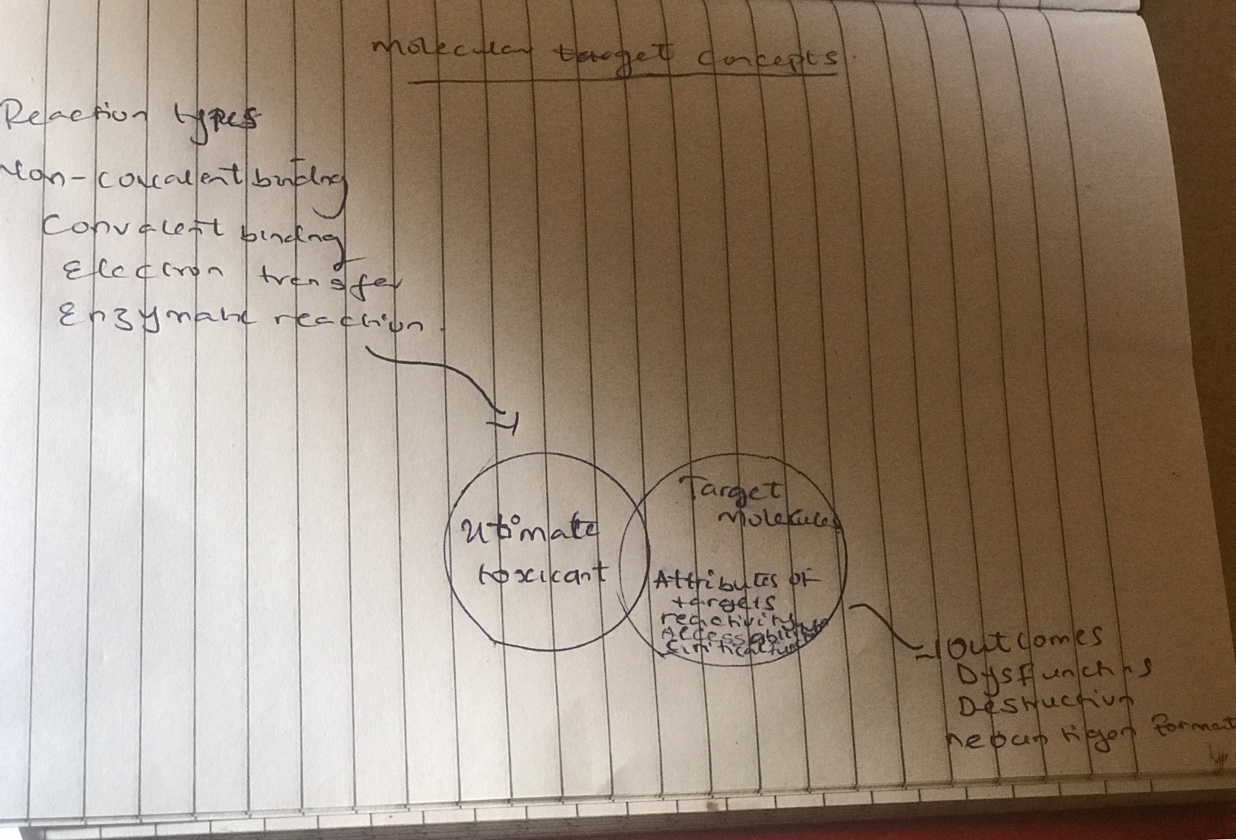 Molecular target concepts
Reaction types
Non-covalent binding
Convalent binding
Electron transfer
Enzymatic reaction
Ultimate
toxicant
Target
Molecules
Attributes of
targets
reactivity
Accessability
Critical
Outcomes
Dysfunction
Destruction
format